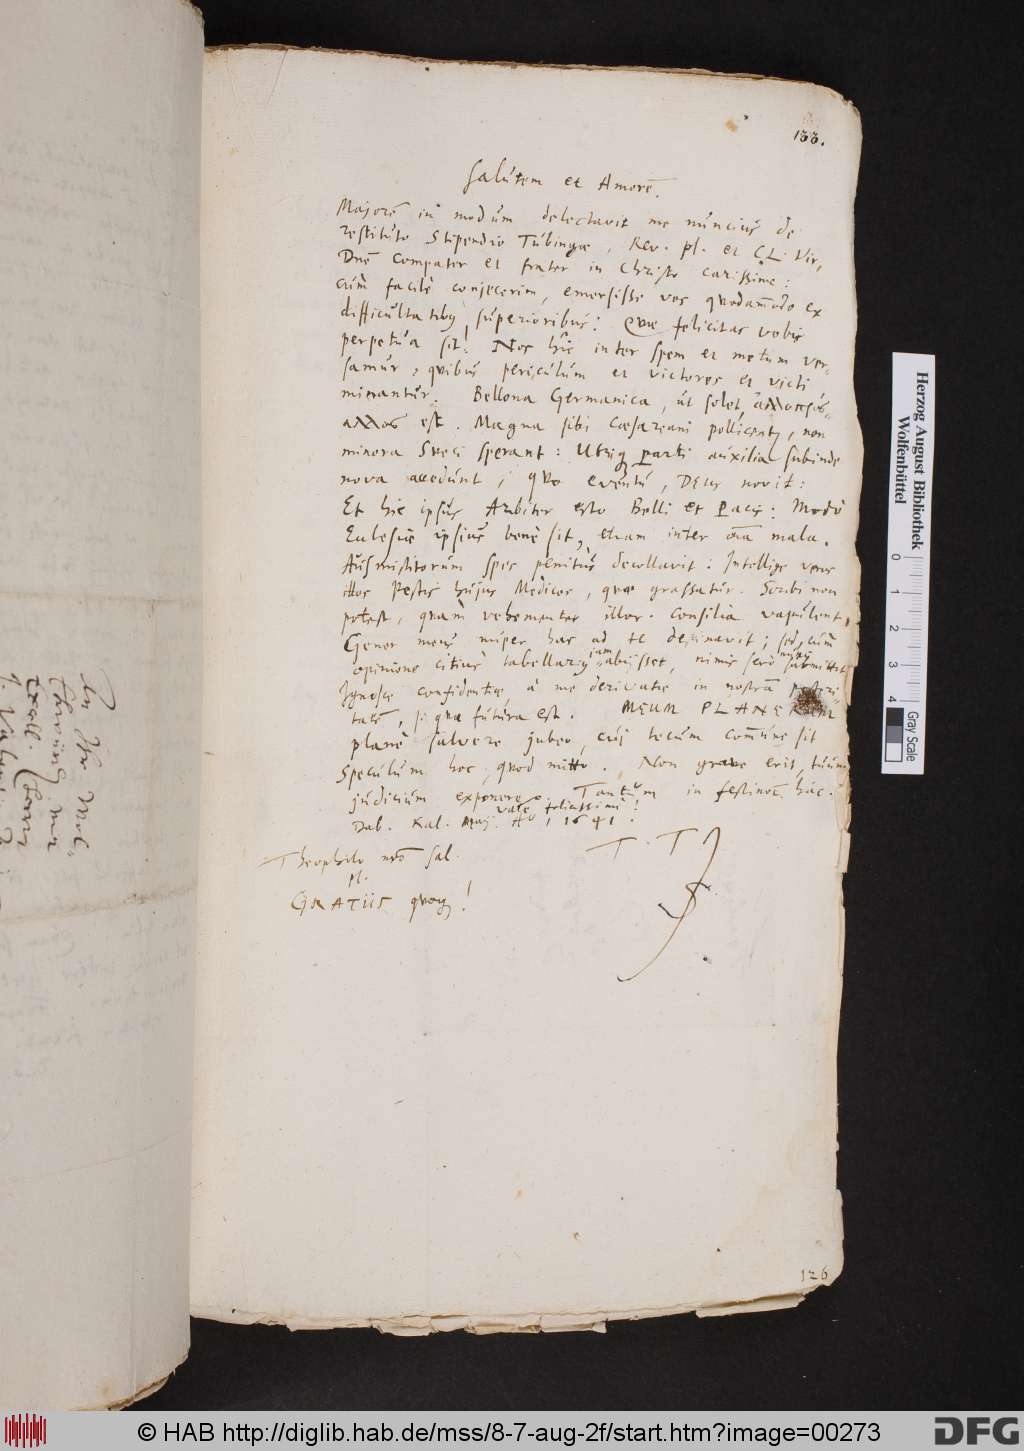 133.
Salutem et Amorē.
Majorē in modum delectavit me nuncius de
restituto Stipendio Tubingæ, Rev. pl. et CL. Vir,
Dnē Compater et frater in Christo carissime:
cùm facilè conjecerim, emersisse vos quodam̄odo ex
difficultatibq superioribus! Quæ felicitas vobis
perpetua sit! Nos hîc inter spem et metum ver-
samur, quibus periculum et victores et victi
minantur. Bellona Germanica, ut solet,
est. Magna sibi Cæsareani pollicentr, non
minora Sueci sperant: Utriq parti auxilia subinde
nova accedunt; quo eventu, Deus novit:
Et hic ipsus Arbiter esto Belli et Pacis: Modò
Eclesiæ ipsius benè sit, etiam inter oīa mala.
spes penitus decollavit: Intellige veros
illos Pestis hujus Medicos, quæ grassatur. Scribi non
potest, quam vehementer illor. consilia vapulent.
Gener meus nuper has ad te destinavit; sed, cùm
opinione citius tabellariq jam abiisset, nimis serò submittit
Ignosce confidentiæ, à me derivatæ in nostrā posteri-
tatē, si quæ futura est. MEUM PLANE
planè salvere jubeo, cuj tecum com̄une sit
Speculum hoc, quod mitto. Non grave erit, tuum
judicium exponere. Tantum in festinoē hâc.
vale felicissimè!
Dab. Kal. Maj. Aō 1641.
Theophilo nrō sal.
pl.
GRATIIS quoq!
T. T.
126
In
Herzog August Bibliothek
Wolfenbüttel
0 1 2 3 4
Gray Scale
© HAB http://diglib.hab.de/mss/8-7-aug-2f/start.htm?image=00273
DFG